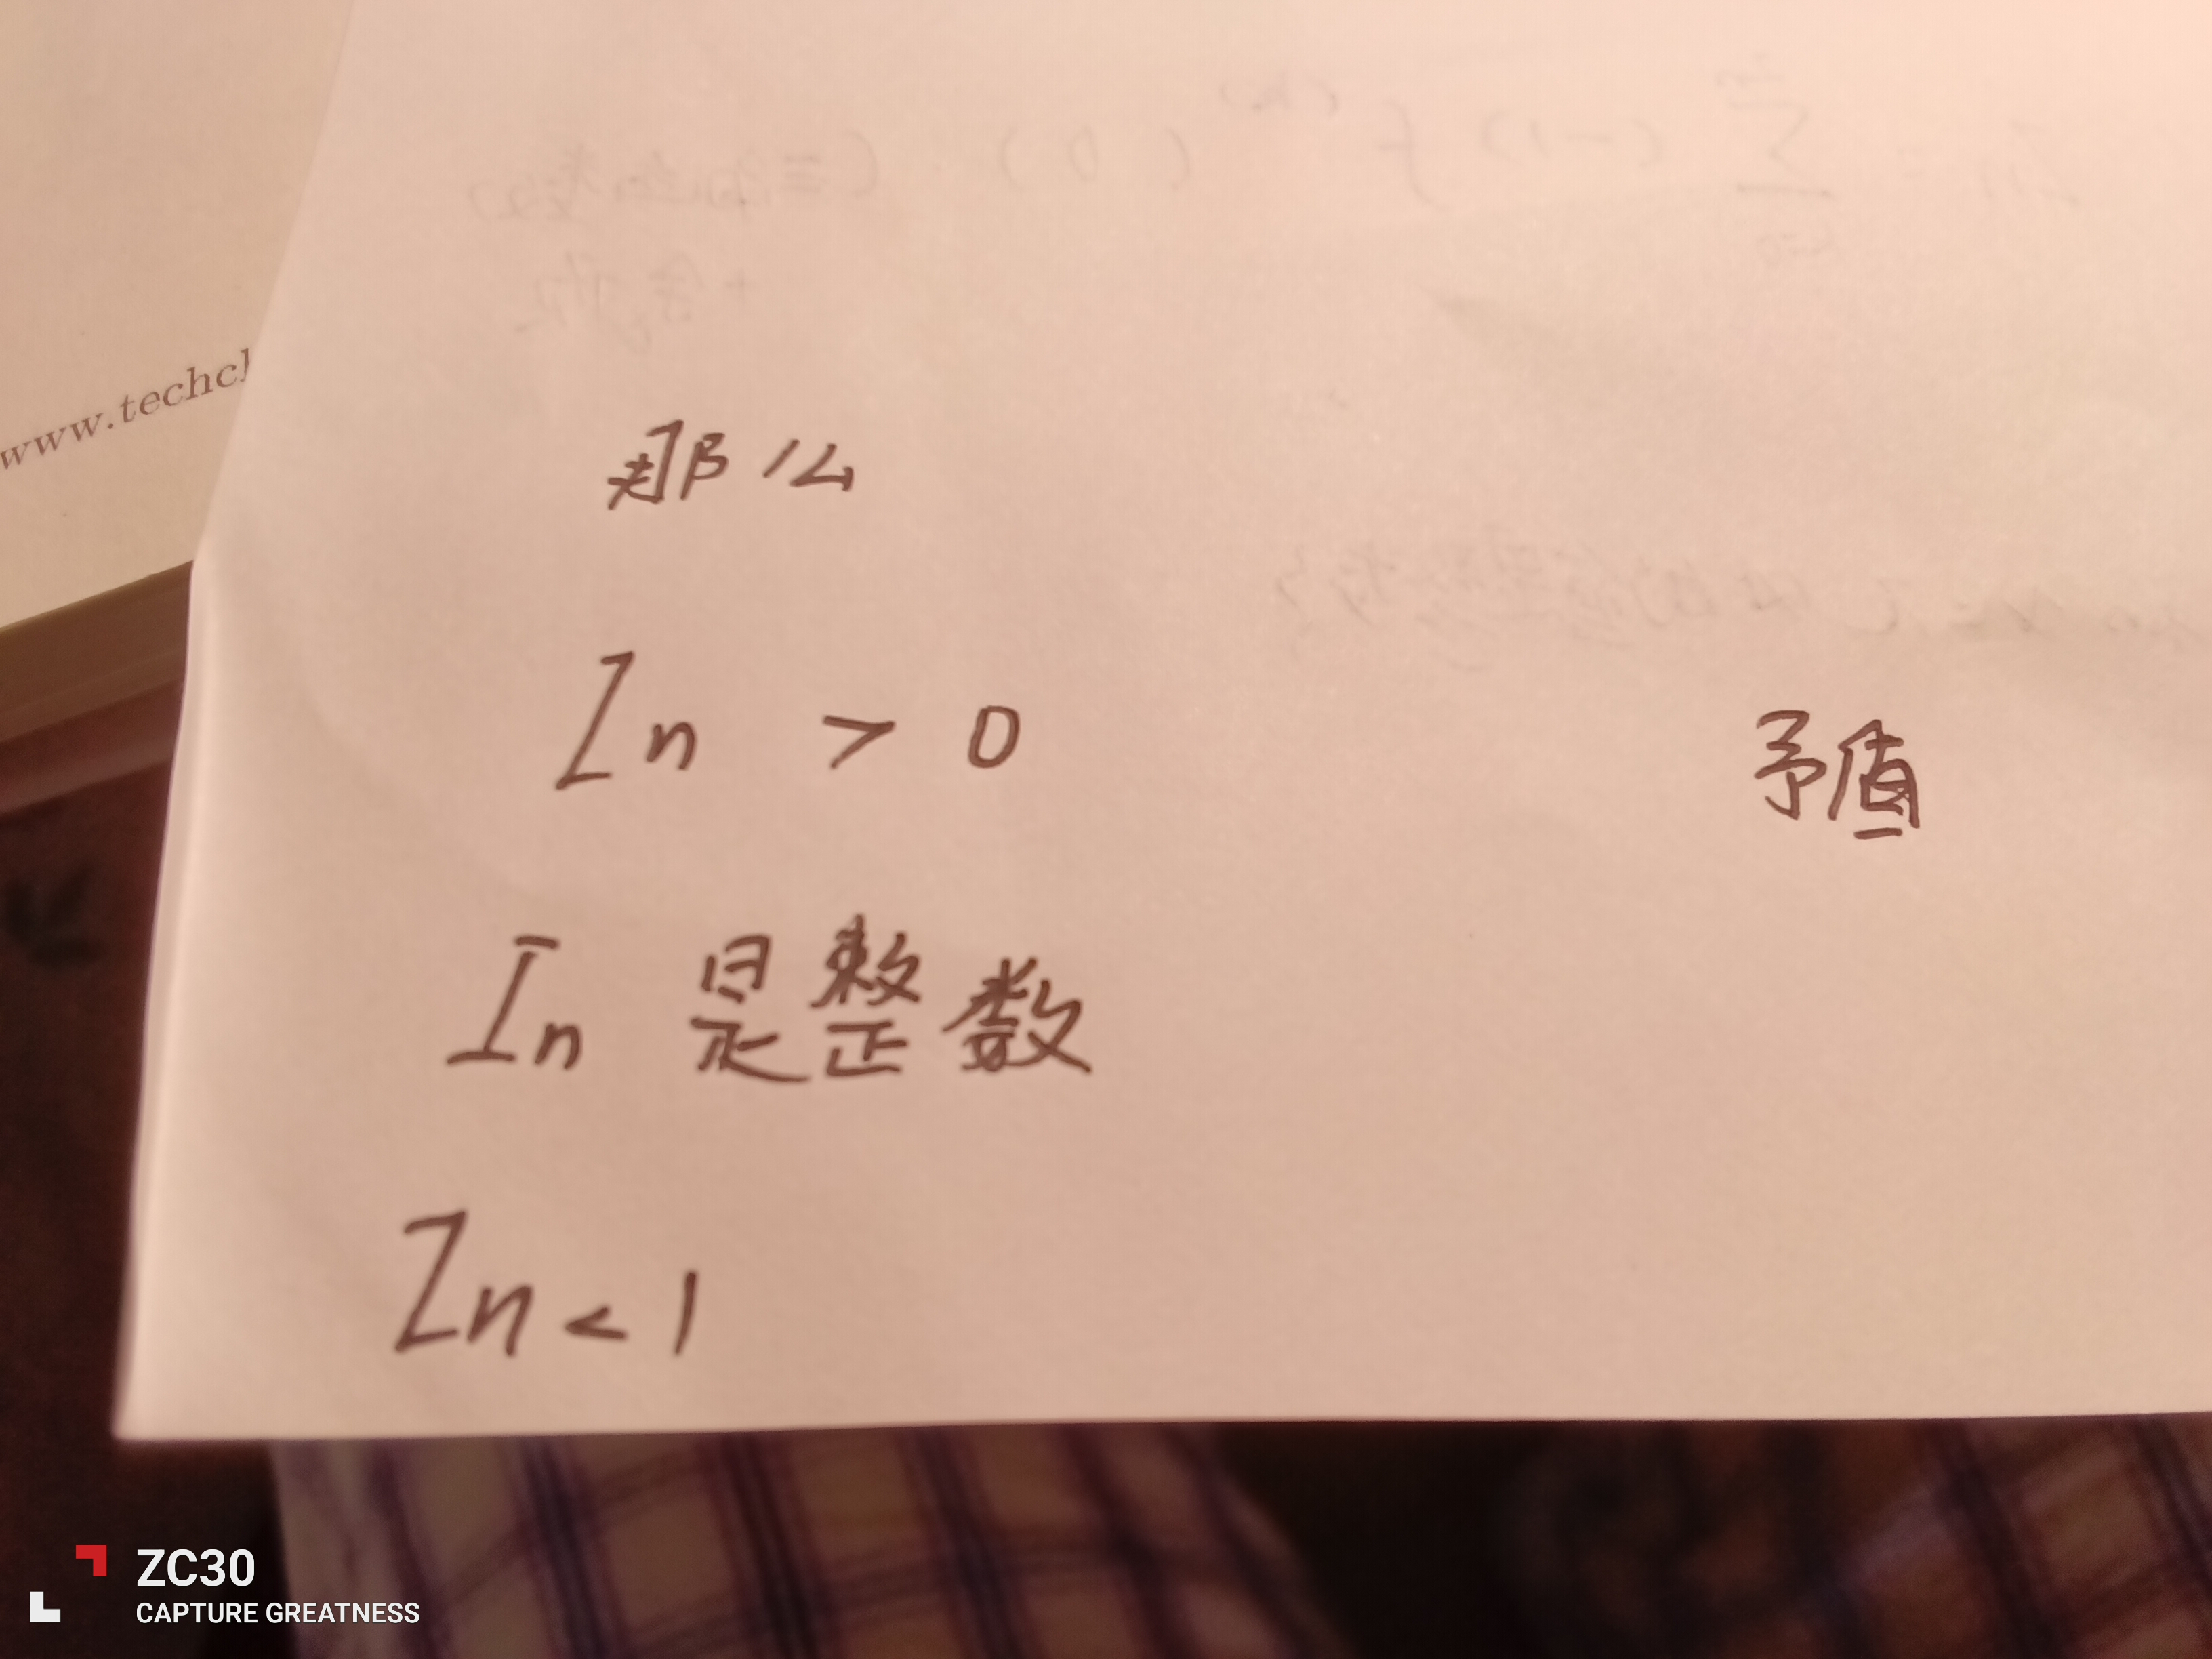 www.techcl
那么
In > 0
矛盾
In 是整数
In < 1
ZC30
CAPTURE GREATNESS